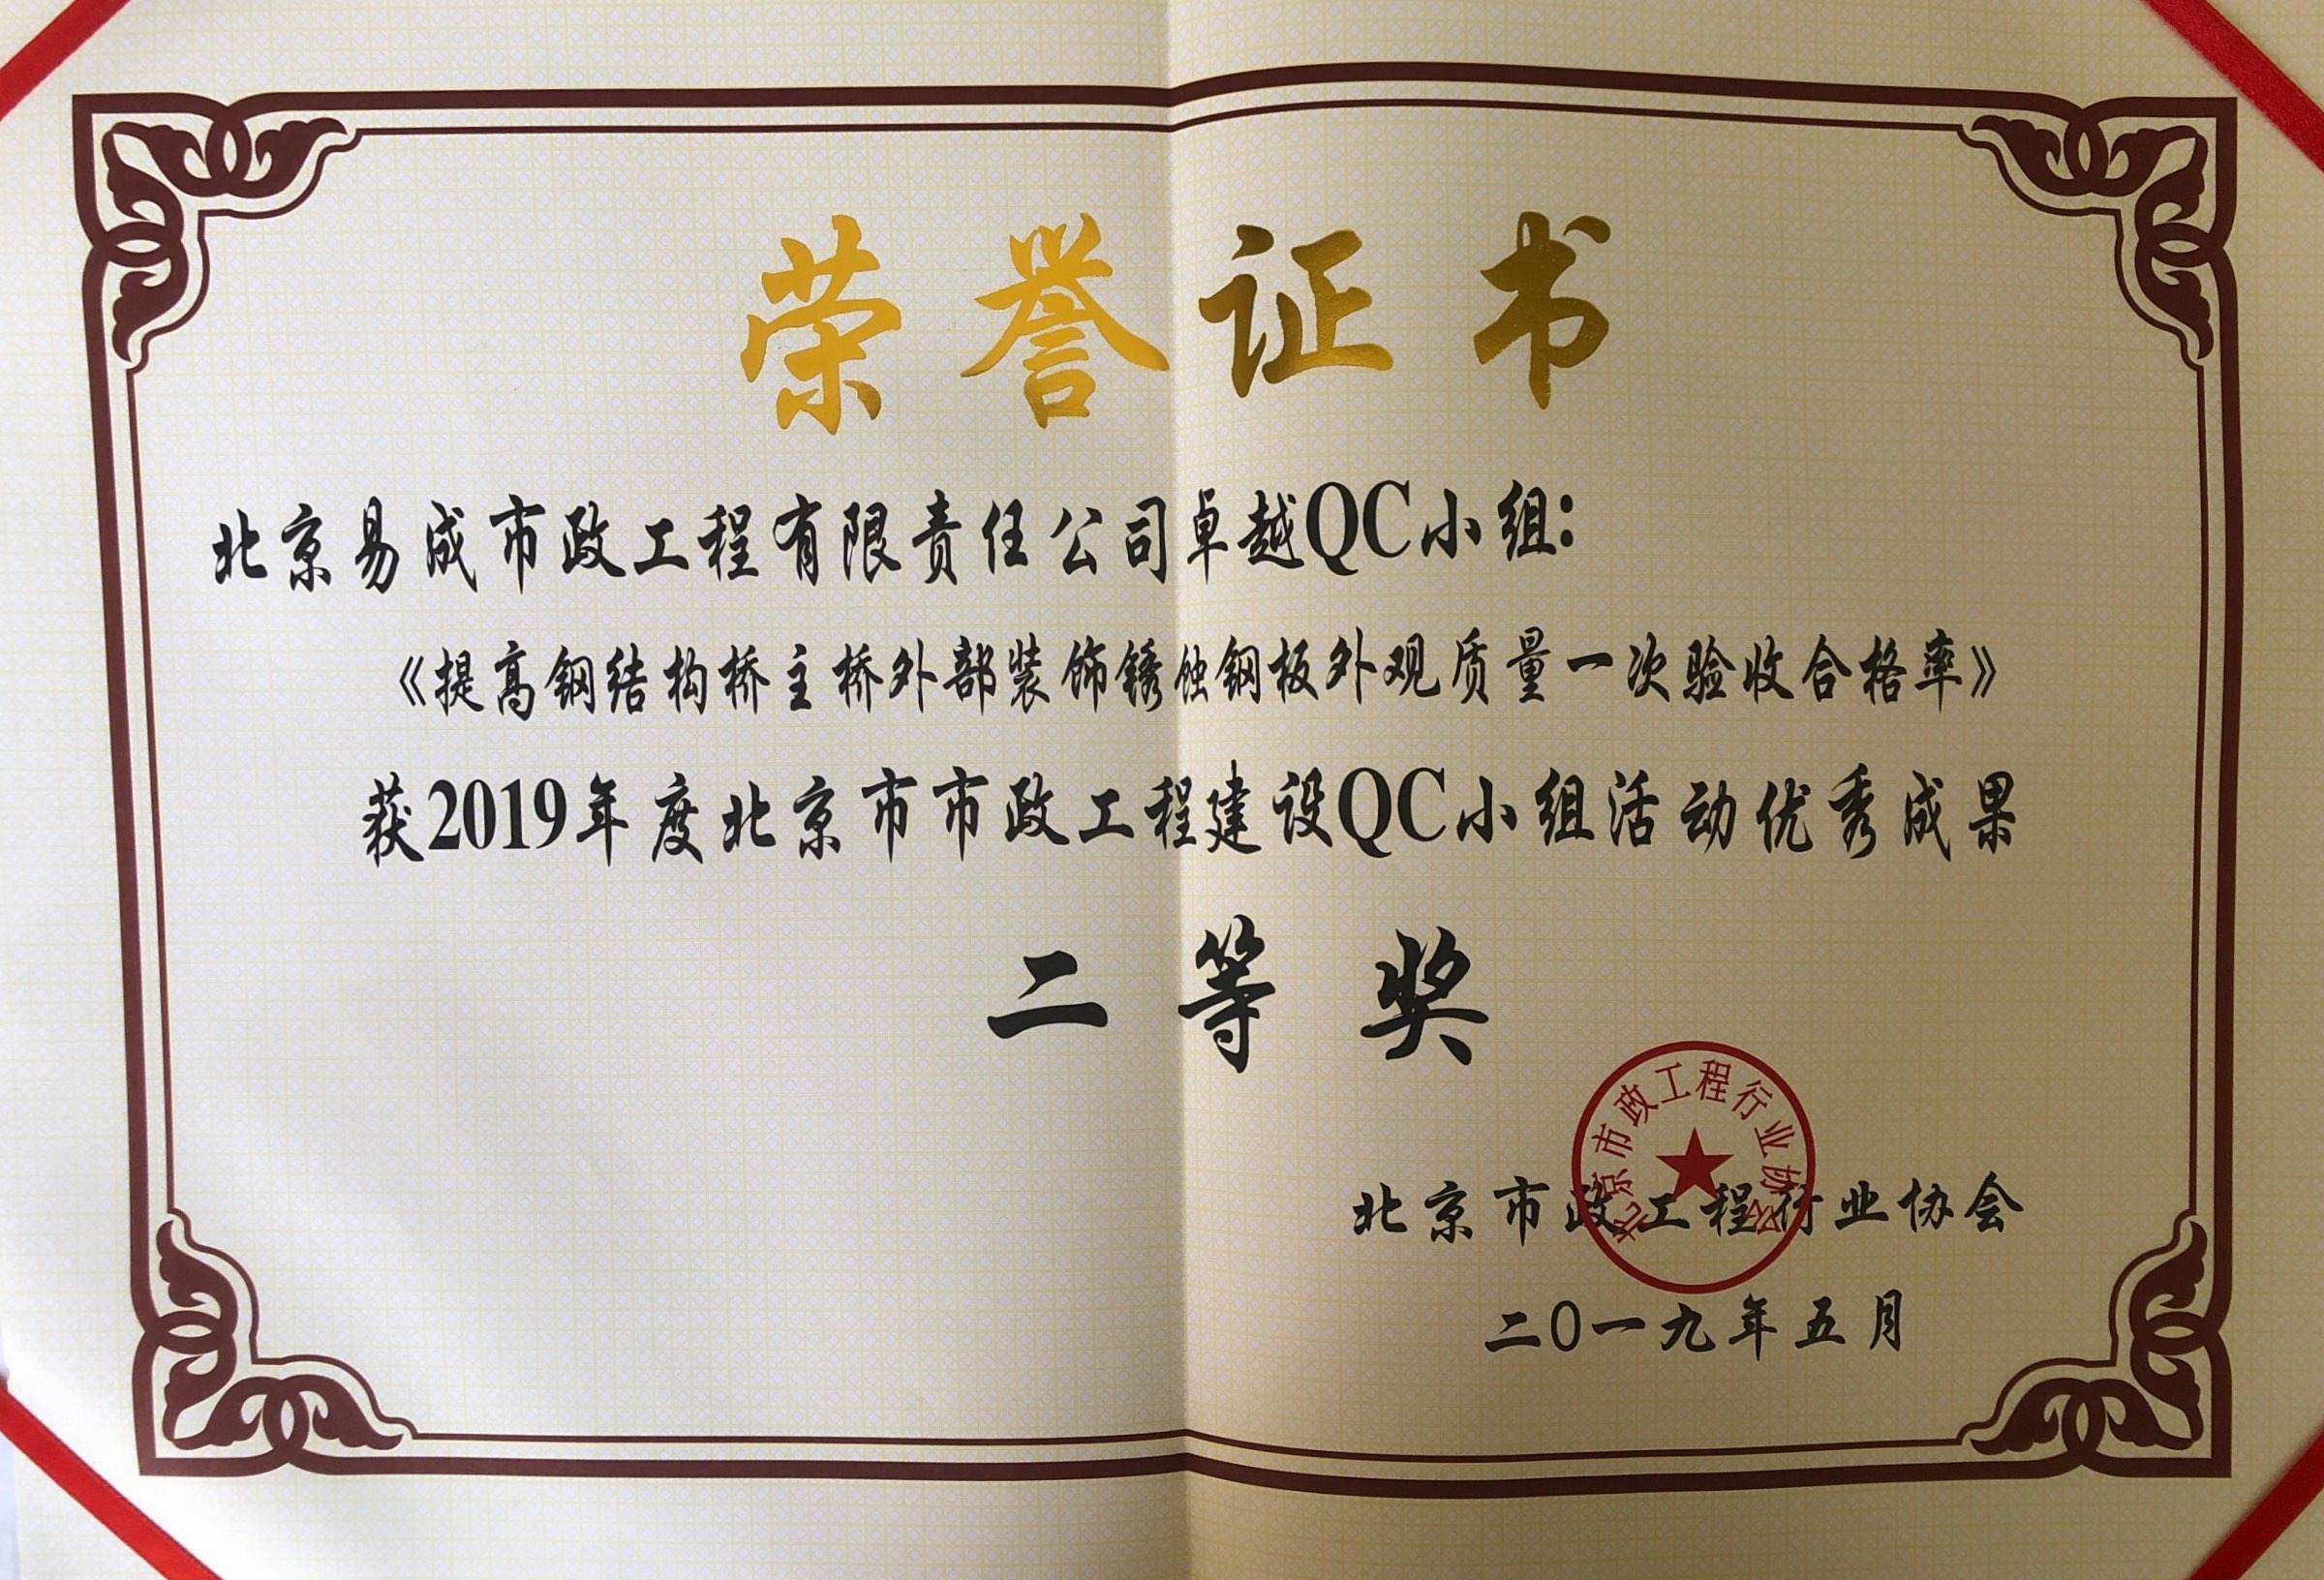 荣誉证书
北京易成市政工程有限责任公司卓越QC小组:
《提高钢结构桥主桥外部装饰锈蚀钢板外观质量一次验收合格率》
获2019年度北京市市政工程建设QC小组活动优秀成果
二等奖
北京市政工程行业协会
北京市政工程行业协会
二〇一九年五月